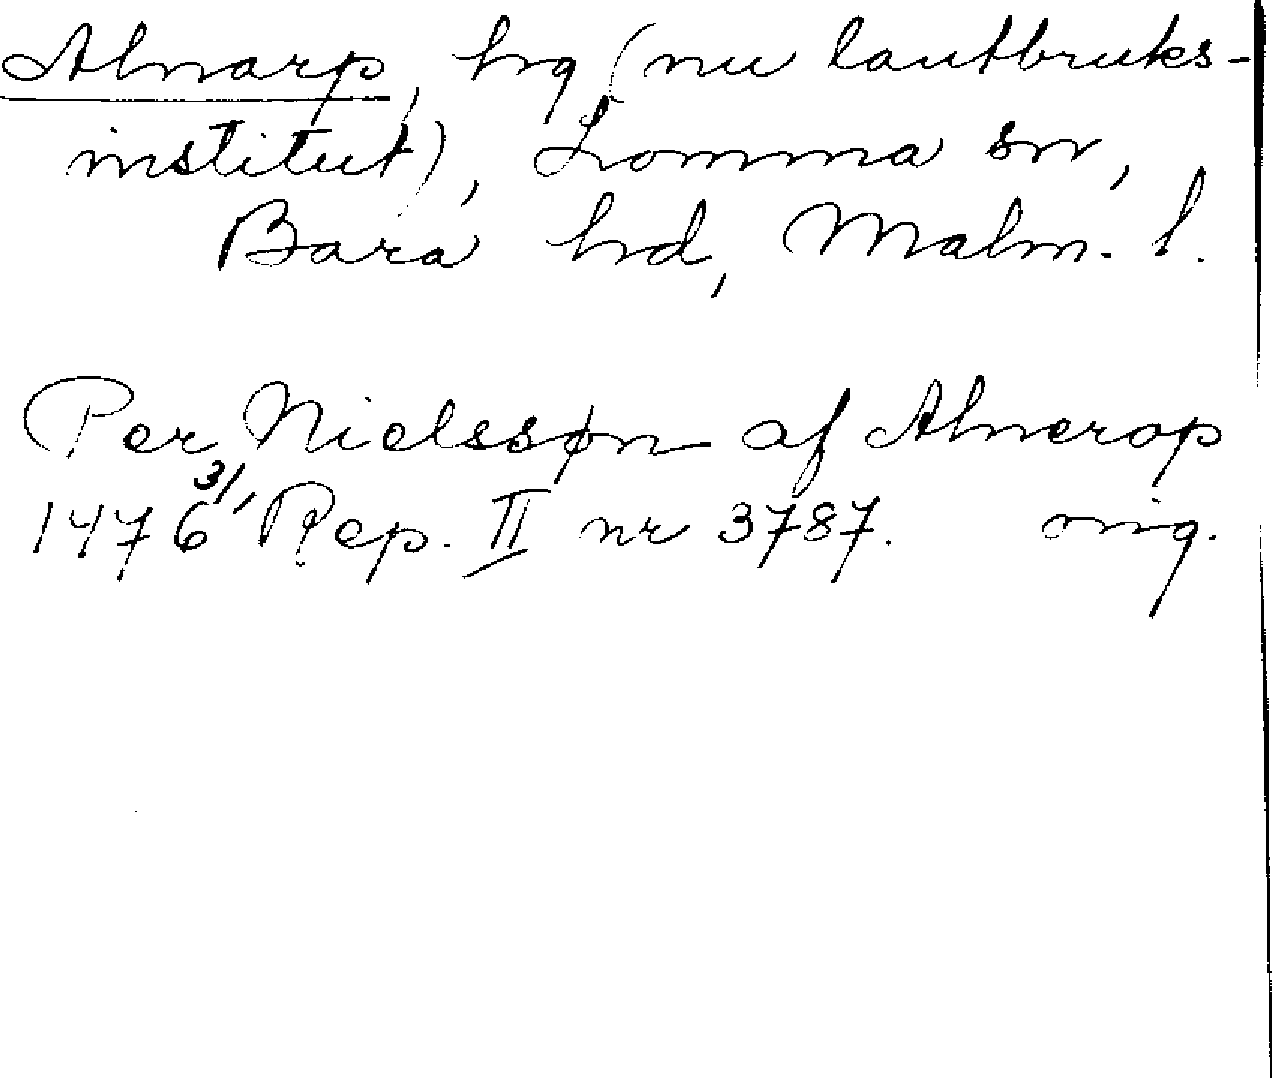 Alnarp, hrg (nu lantbruks-
institut), Lomma sn,
Bara hd, Malm. l.
Per Nielssøn af Alnerop
1476 3/6, Rep. II nr 3787. orig.